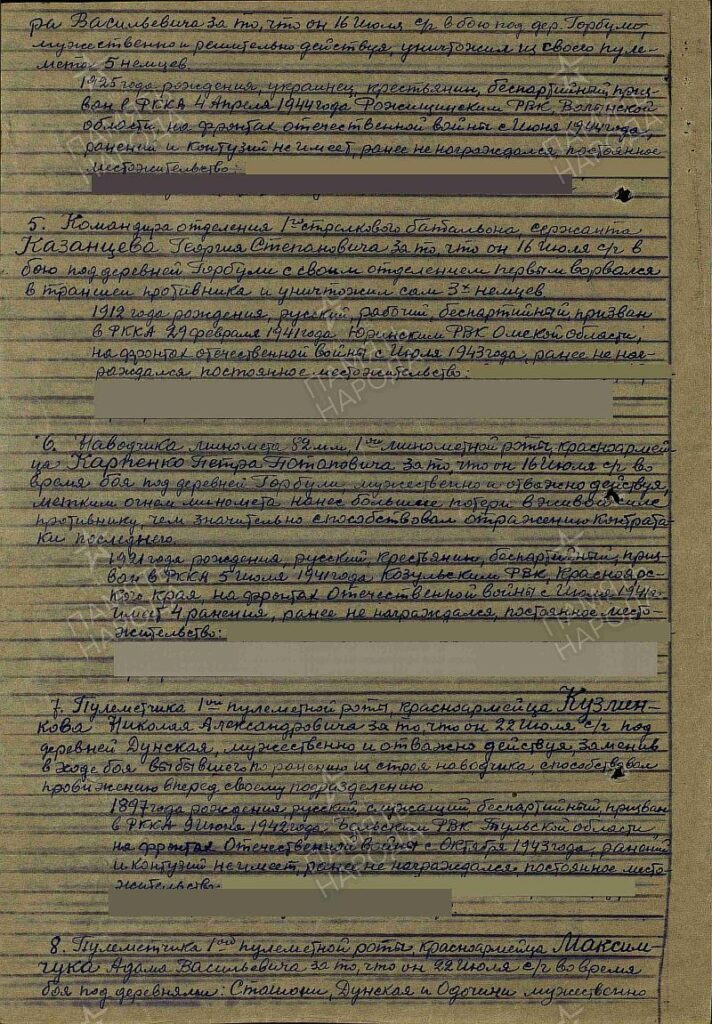 ра Васильевича за то, что он 16 июля с/г в бою под дер. Горбули,
мужественно и решительно действуя, уничтожил из своего пуле-
мета 5 немцев.
1925 года рождения, украинец, крестьянин, беспартийный, приз-
ван в РККА 4 апреля 1944 года Рожищинским РВК, Волынской
области, на фронтах отечественной войны с июня 1944 года,
ранений и контузий не имеет, ранее не награждался, постоянное
местожительство:
5. Командира отделения 1го стрелкового баталъона сержанта
Казанцева Георгия Степановича за то, что он 16 июля с/г в
бою под деревней Горбули с своим отделением первым ворвался
в траншеи противника и уничтожил сам 3х немцев.
1912 года рождения, русский, рабочий, беспартийный, призван
в РККА 29 февраля 1941 года РВК Омской области,
на фронтах отечественной войны с июля 1943 года, ранее не наг-
раждался, постоянное местожительство:
6. Наводчика миномета 82 мм 1ой минометной роты, красноармей-
ца Карпенко Петра Потаповича за то, что он 16 июля с/г во
время боя под деревней Горбули мужественно и отважно действуя,
метким огнем миномета нанес большие потери в живой силе
противнику, чем значительно способствовал отражению контрата-
ки последнего.
1921 года рождения, русский, крестьянин, беспартийный, приз-
ван в РККА 5 июля 1941 года Козульским РВК, Краснояр-
ского края, на фронтах Отечественной войны с июля 1941 г.
имеет 4 ранения, ранее не награждался, постоянное место-
жительство:
7. Пулеметчика 1ой пулеметной роты, красноармейца Кузлин-
кова Николая Александровича за то, что он 22 июля с/г под
деревней Дунская, мужественно и отважно действуя, заменив
в ходе боя выбывшего по ранению из строя наводчика, способствовал
продвижению вперед своему подразделению.
1897 года рождения русский служащий беспартийный призван
в РККА 9 июня 1942 года РВК Тульской области,
на фронтах Отечественной войны с октября 1943 года, ранений
и контузий не имеет, ранее не награждался постоянное место-
жительство.
8. Пулеметчика 1ой пулеметной роты, красноармейца Максим-
чука Адама Васильевича за то, что он 22 июля с/г во время
боя под деревнями: Сташони, Дунская и Одочини мужественно
ПАМЯТЬ
НАРОДА